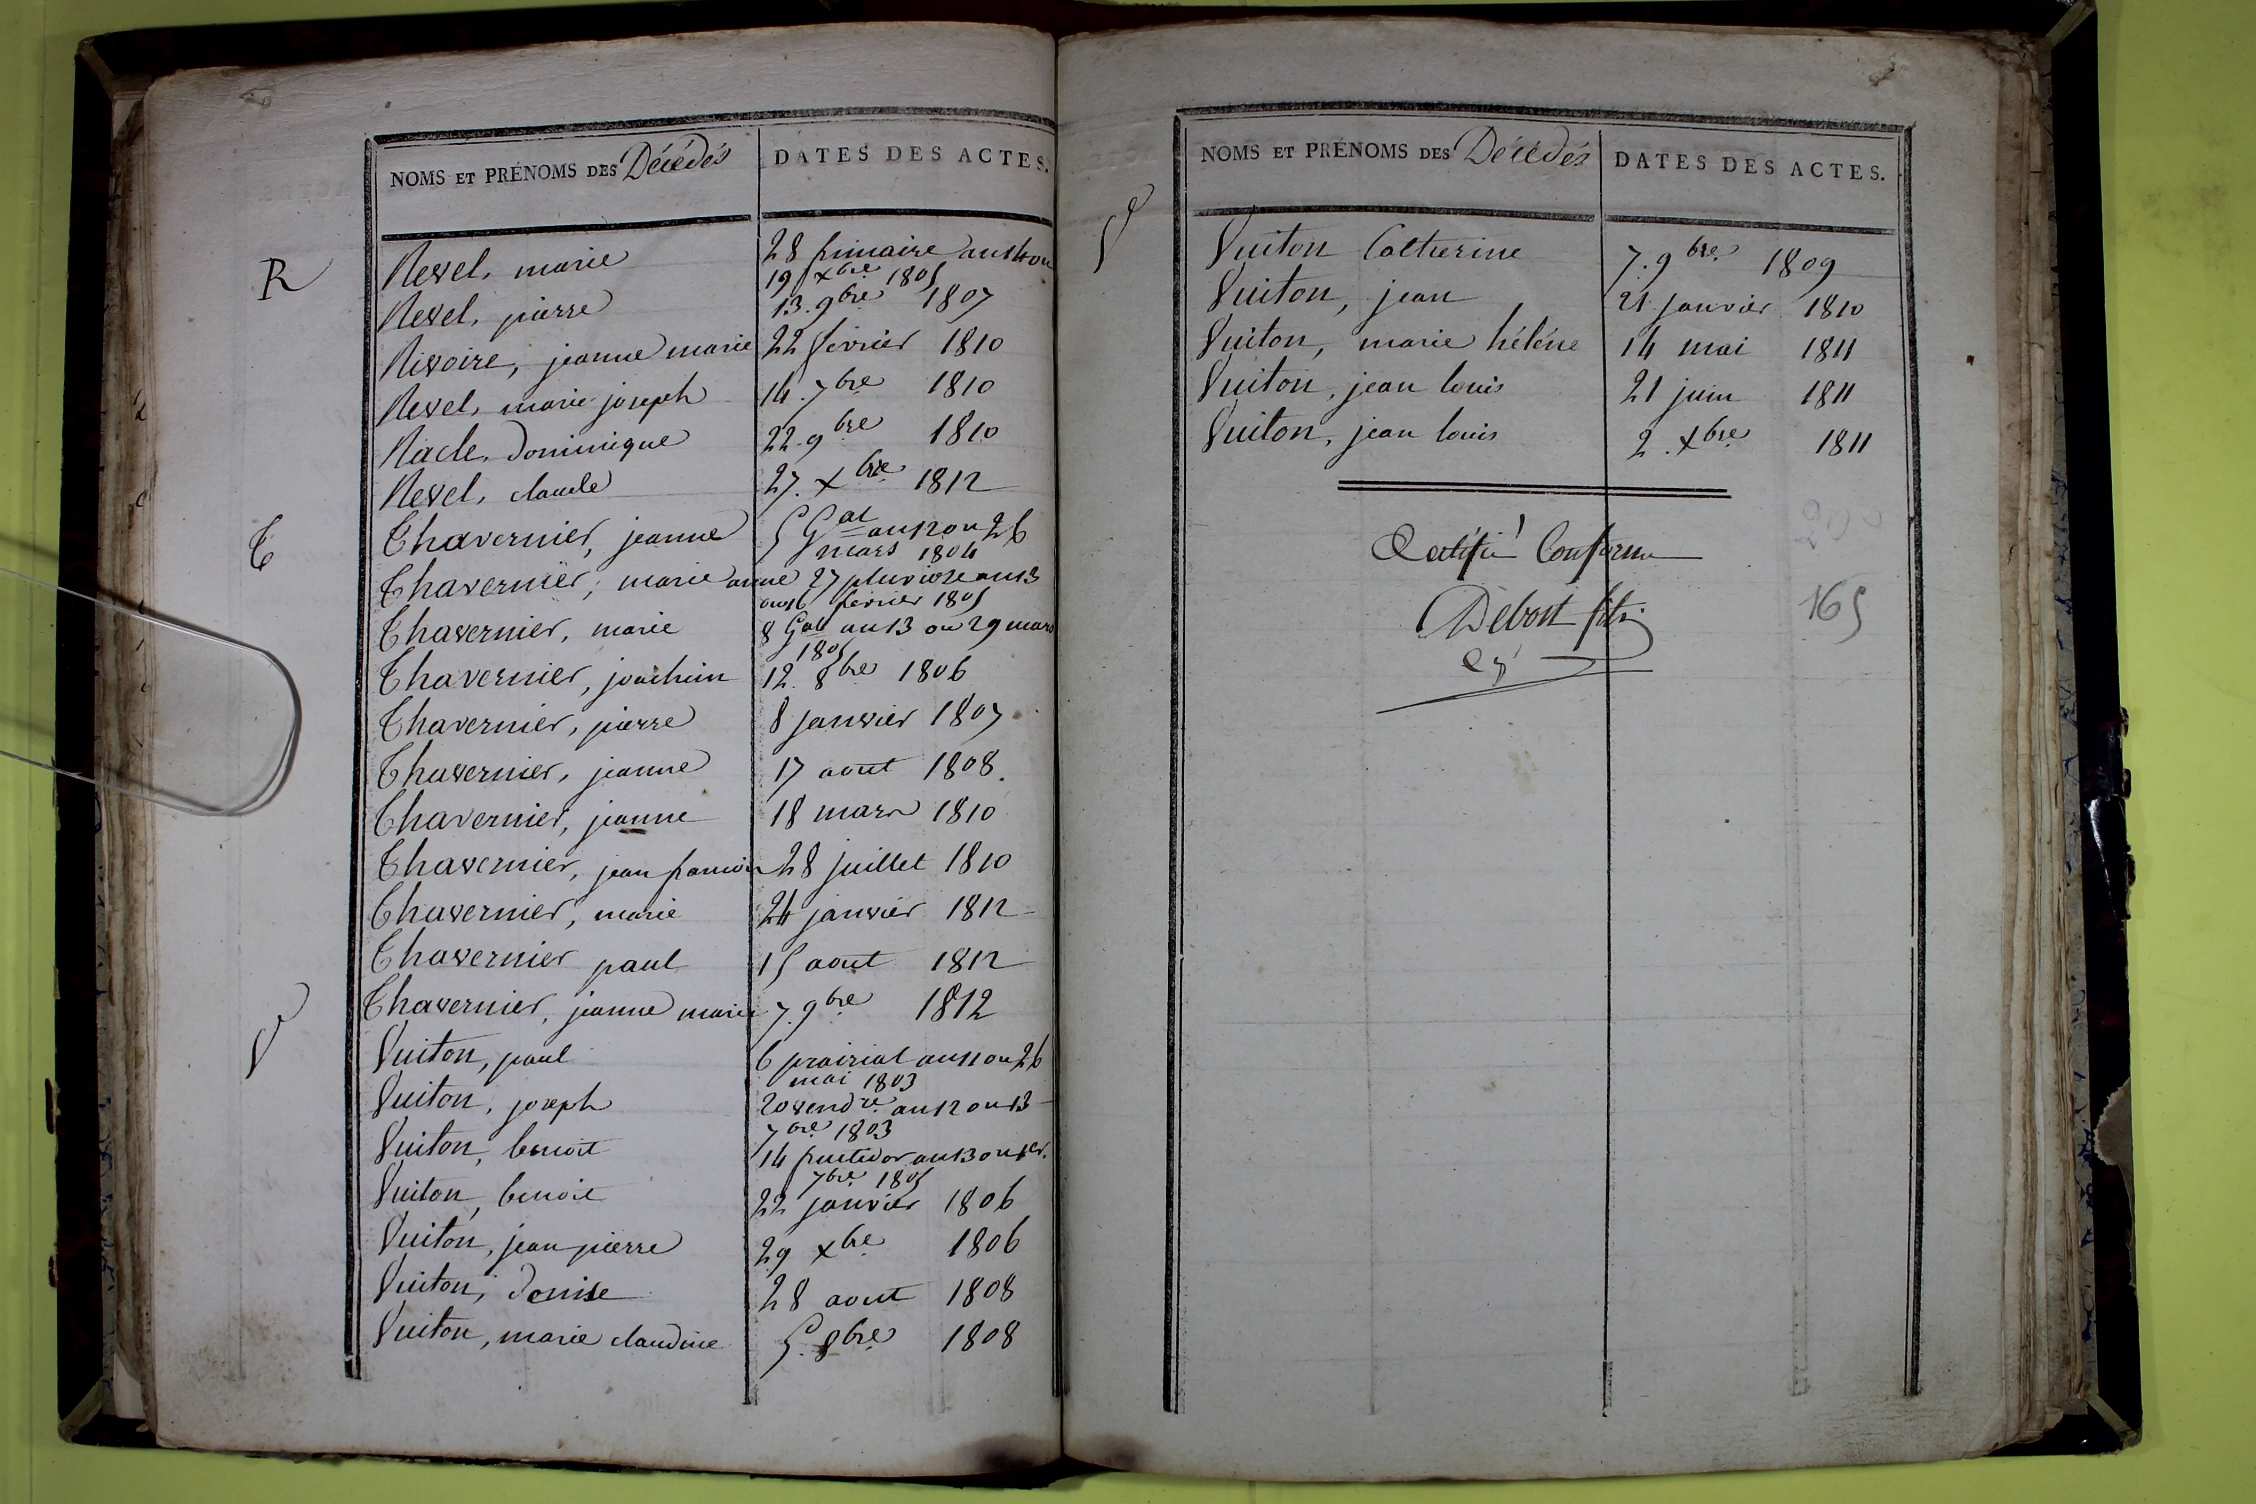 NOMS ET PRÉNOMS DES Décédés DATES DES ACTES.
R
Revel, marie 28 frimaire an 14 ou
19 xbre 1805
Revel, pierre 13. 9bre 1807
Rivoire, jeanne marie 22 février 1810
Revel, marie joseph 14. 7bre 1810
Racle, Dominique 22. 9bre 1810
Revel, claude 27. xbre 1812
T
Thavernier, jeanne 5 Gal an 12 ou 26
mars 1804
Thavernier, marie anne 27 pluviose an 13
ou 16 février 1805
Thavernier, marie 8 Gal an 13 ou 29 mars
1805
Thavernier, joachim 12. 8bre 1806
Thavernier, pierre 8 janvier 1807
Thavernier, jeanne 17 aout 1808.
Thavernier, jeanne 18 mars 1810
Thavernier, jean francois 28 juillet 1810
Thavernier, marie 24 janvier 1812
Thavernier paul 15 aout 1812
Thavernier, jeanne marie 7. 9bre 1812
V
Vuiton, paul 6 prairial an 11 ou 26
mai 1803
Vuiton, joseph 20 vendre an 12 ou 13
7bre 1803
Vuiton, benoit 14 fructidor an 13 ou 1er.
7bre 1805
Vuiton, benoit 22 janvier 1806
Vuiton, jean pierre 29 xbre 1806
Vuiton, Denise 28 aout 1808
Vuiton, marie claudine 5. 8bre 1808
NOMS ET PRÉNOMS DES Décédés DATES DES ACTES.
V
Vuiton Catherine 7. 9bre 1809
Vuiton, jean 21 janvier 1810
Vuiton, marie hélène 14 mai 1811
Vuiton, jean louis 21 juin 1811
Vuiton, jean louis 2. xbre 1811
Certifié Conforme
Debost fils
165